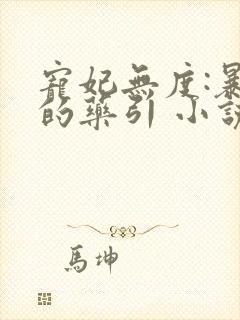 寵妃無度:暴
的藥引 小說
馬坤